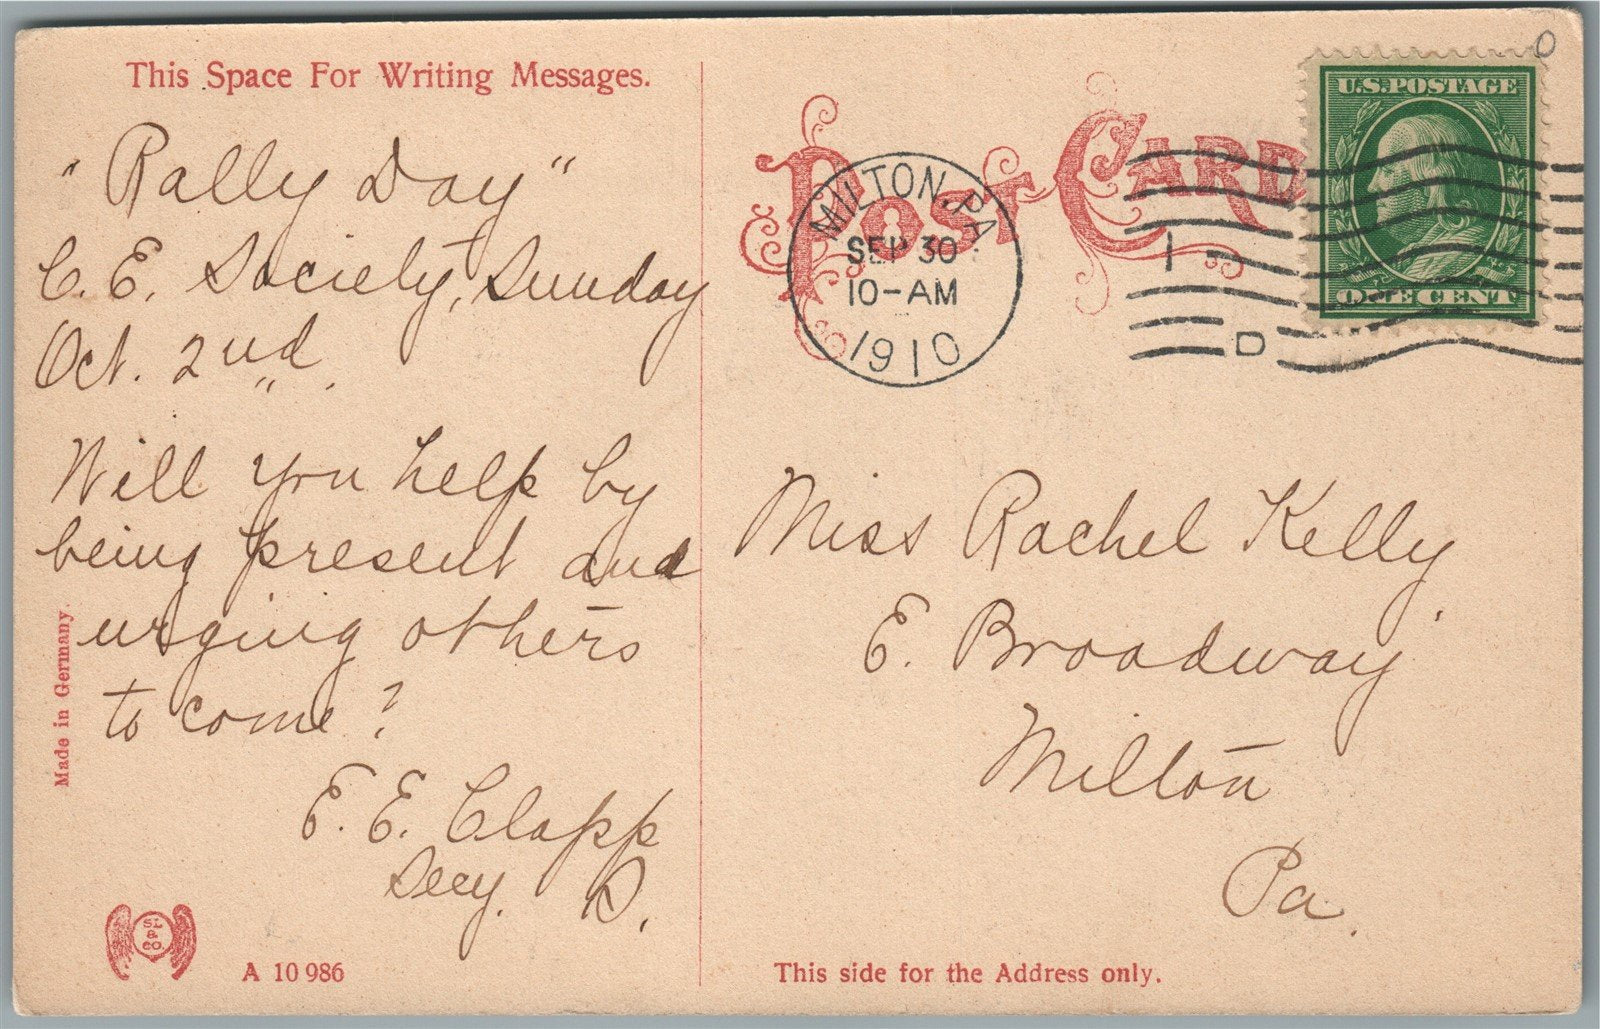 This Space For Writing Messages.
" Rally Day "
C. E. Society, Sunday
Oct. 2nd.
Will you help by
being present and
urging others
to come?
E. E. Clapp
Secy.
Made in Germany.
SL
&
CO.
A 10986
POST CARD
MILTON, PA.
SEP 30
10-AM
1910
1
D
U.S. POSTAGE
ONE CENT
Miss Rachel Kelly
E. Broadway
Milton
Pa.
This side for the Address only.